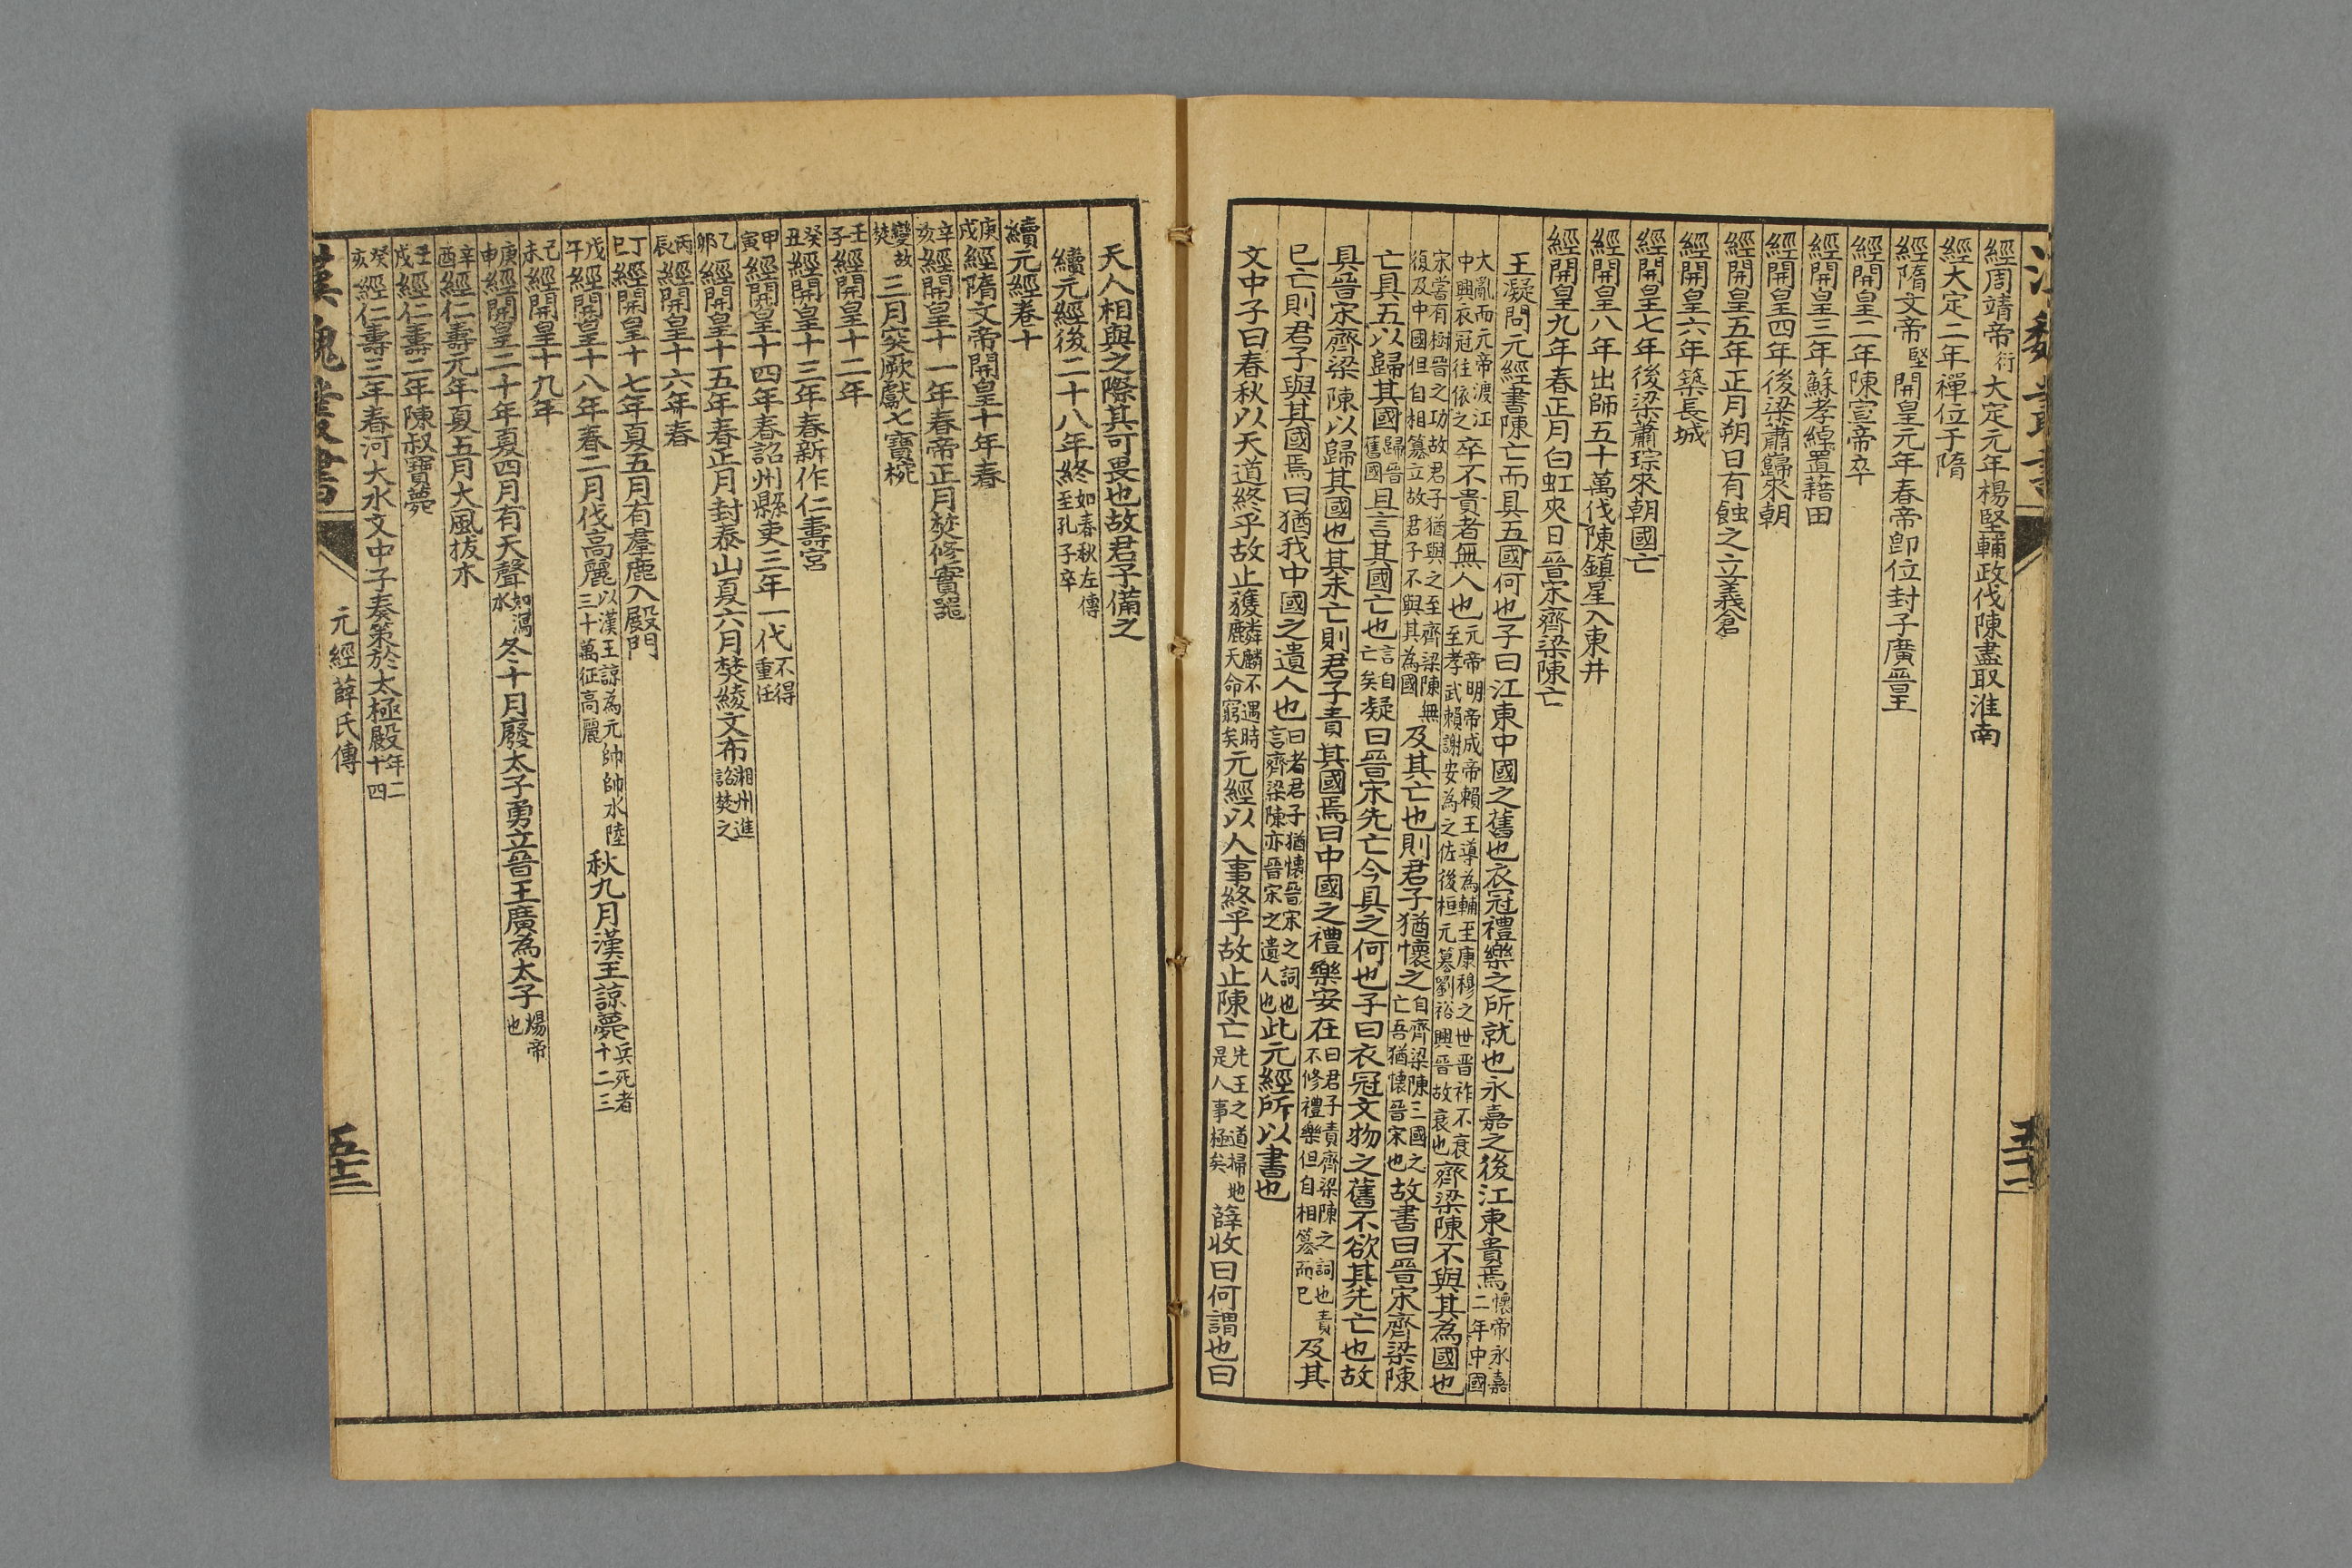 經周靖帝衍大定元年楊堅輔政伐陳盡取淮南
經大定二年禪位于隋
經隋文帝堅開皇元年春帝卽位封子廣晉王
經開皇二年陳宣帝卒
經開皇三年蘇孝綽置藉田
經開皇四年後梁蕭巋來朝
經開皇五年正月朔日有蝕之立義倉
經開皇六年築長城
經開皇七年後梁蕭琮來朝國亡
經開皇八年出師五十萬伐陳鎮星入東井
經開皇九年春正月白虹夾日晉宋齊梁陳亡
王凝問元經書陳亡而具五國何也子曰江東中國之舊也衣冠禮樂之所就也永嘉之後江東貴焉懷帝永嘉二年中國
大亂而元帝渡江中興衣冠往依之卒不貴者無人也元帝明帝成帝賴王導為輔至康穆之世晉祚不衰至孝武賴謝安為之佐後桓元篡劉裕興晉故衰也齊梁陳不與其為國也
宋嘗有樹晉之功故君子猶與之至齊梁陳無復及中國但自相篡立故君子不與其為國及其亡也則君子猶懷之自齊梁陳三國之亡吾猶懷晉宋也故書曰晉宋齊梁陳
亡具五以歸其國歸晉舊國且言其國亡也言自亡矣凝曰晉宋先亡今具之何也子曰衣冠文物之舊不欲其先亡也故
具晉宋齊梁陳以歸其國也其未亡則君子責其國焉曰中國之禮樂安在曰君子責齊梁陳之詞也責不修禮樂但自相篡而已及其
已亡則君子與其國焉曰猶我中國之遺人也曰者君子猶懷晉宋之詞也言齊梁陳亦晉宋之遺人也此元經所以書也
文中子曰春秋以天道終乎故止獲麟麟不遇時天命窮矣元經以人事終乎故止陳亡先王之道掃地是人事極矣薛收曰何謂也曰
天人相與之際其可畏也故君子備之
續元經後二十八年終如春秋左傳至孔子卒
續元經卷十
庚戌經隋文帝開皇十年春
辛亥經開皇十一年春帝正月焚修寶器
變故焚三月突厥獻七寶椀
壬子經開皇十二年
癸丑經開皇十三年春新作仁壽宮
甲寅經開皇十四年春詔州縣吏三年一代不得重任
乙卯經開皇十五年春正月封泰山夏六月焚綾文布湘州進詔焚之
丙辰經開皇十六年春
丁巳經開皇十七年夏五月有羣鹿入殿門
戊午經開皇十八年春二月伐高麗以漢王諒為元帥帥水陸三十萬征高麗秋九月漢王諒薨兵死者十二三
己未經開皇十九年
庚申經開皇二十年夏四月有天聲如瀉水冬十月廢太子勇立晉王廣為太子煬帝也
辛酉經仁壽元年夏五月大風拔木
壬戌經仁壽二年陳叔寶薨
癸亥經仁壽三年春河大水文中子奏策於太極殿年二十四
漢魏叢書 元經薛氏傳 五十二